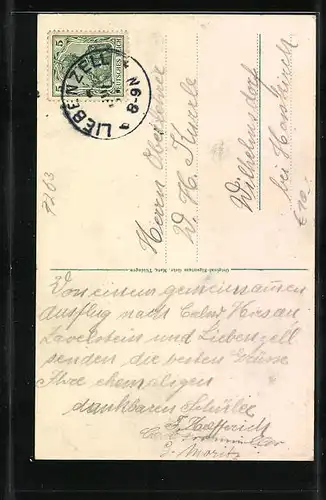 5 5
DEUTSCHES REICH
LIEBENZELL
8-9 N
Herrn Oberlehrer
W. H. Kurrle
Wilhelmsdorf
bei
Original-Eigentum Gebr. Metz, Tübingen
Von einem gemeinsamen
Ausflug nach Calw Hirsau
Zavelstein und Liebenzell
senden die besten Grüsse
Ihre ehemaligen
dankbaren Schüler